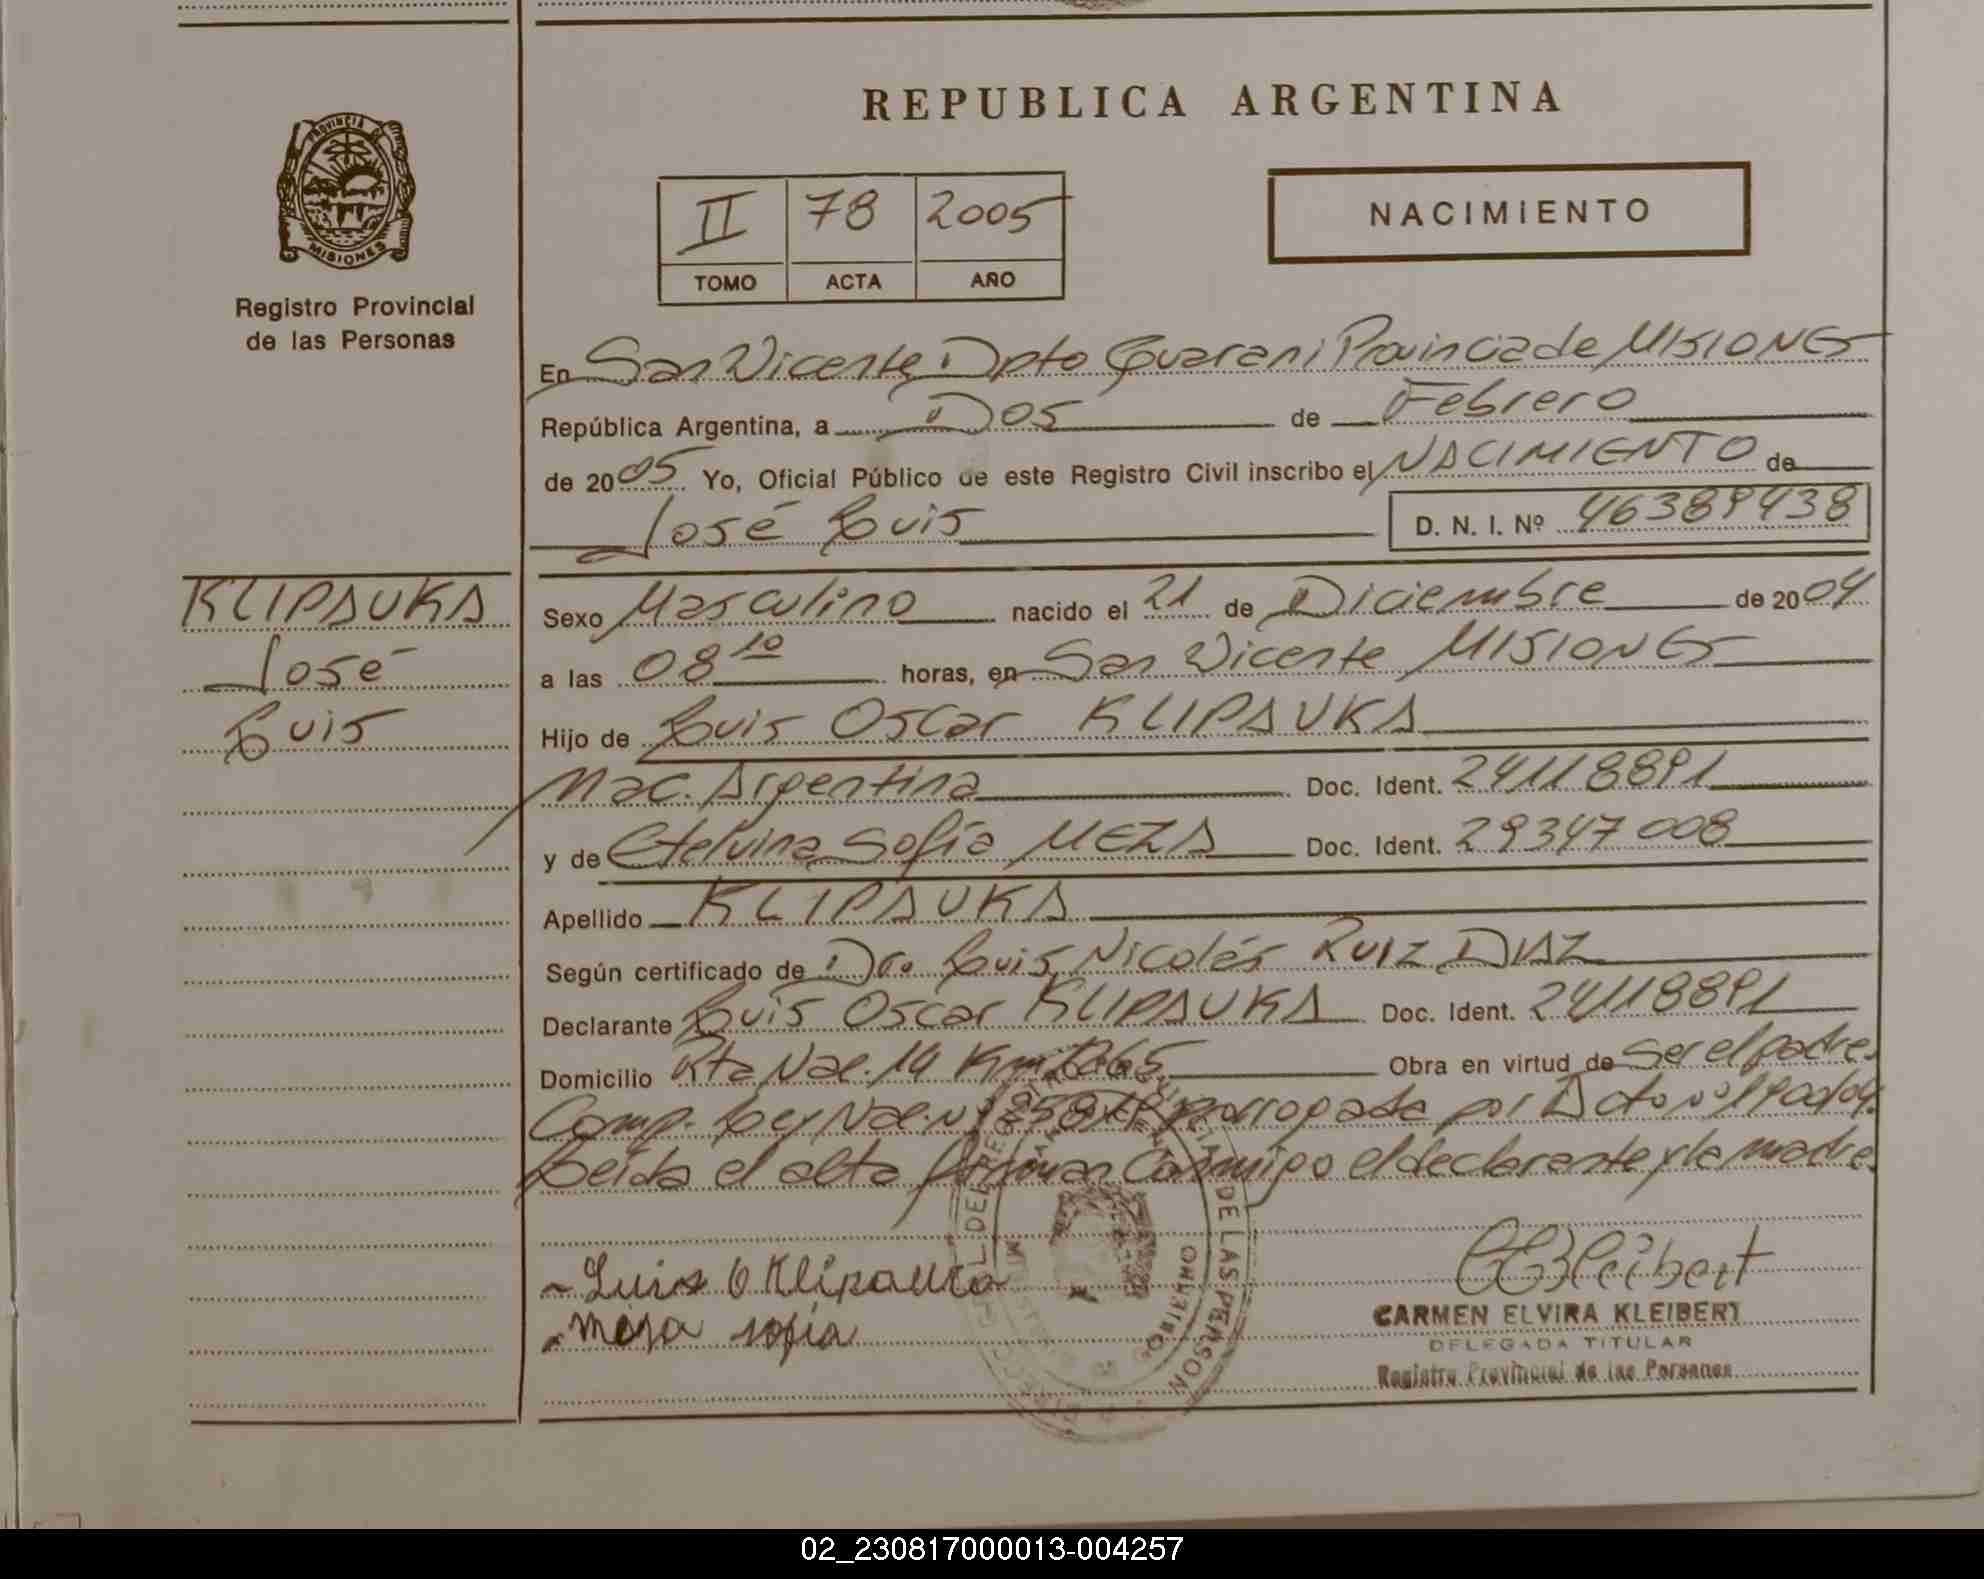 REPUBLICA ARGENTINA
PROVINCIA DE MISIONES
Registro Provincial
de las Personas
II 78 2005
TOMO ACTA AÑO
NACIMIENTO
En San Vicente Dpto Guarani Provincia de MISIONES
República Argentina, a Dos de Febrero
de 2005 Yo, Oficial Público de este Registro Civil inscribo el NACIMIENTO de
José Luis D. N. I. Nº 46389438
KLIPAUKA
José
Luis
Sexo Masculino nacido el 21 de Diciembre de 2004
a las 08 10 horas, en San Vicente MISIONES
Hijo de Luis Oscar KLIPAUKA
Nac. Argentina Doc. Ident. 24118891
y de Etelvina Sofía MEZA Doc. Ident. 29347008
Apellido KLIPAUKA
Según certificado de Dr. Luis Nicolás RUIZ DIAZ
Declarante Luis Oscar KLIPAUKA Doc. Ident. 24118891
Domicilio Rta Nal. 14 Km Obra en virtud de Ser el padre
Comp. Ley Nal. por
Leída el alta firman Conmigo el declarante y la madre
Luis O Klipauka
Meza sofia
CARMEN ELVIRA KLEIBERT
DELEGADA TITULAR
Registro Provincial de las Personas
DE LAS PERSONAS
GOBIERNO
02_230817000013-004257